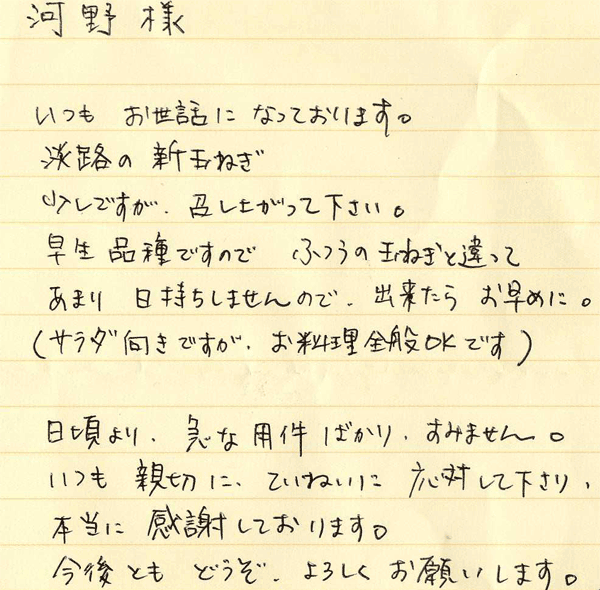 河野 様
いつも お世話に なっております。
淡路の 新玉ねぎ
少しですが、召し上がって下さい。
早生品種ですので ふつうの玉ねぎと違って
あまり 日持ちしませんので、出来たら お早めに。
(サラダ向きですが、お料理全般OKです)
日頃より、急な用件ばかり、すみません。
いつも 親切に、ていねいに 応対して下さり、
本当に 感謝しております。
今後とも どうぞ、よろしく お願いします。